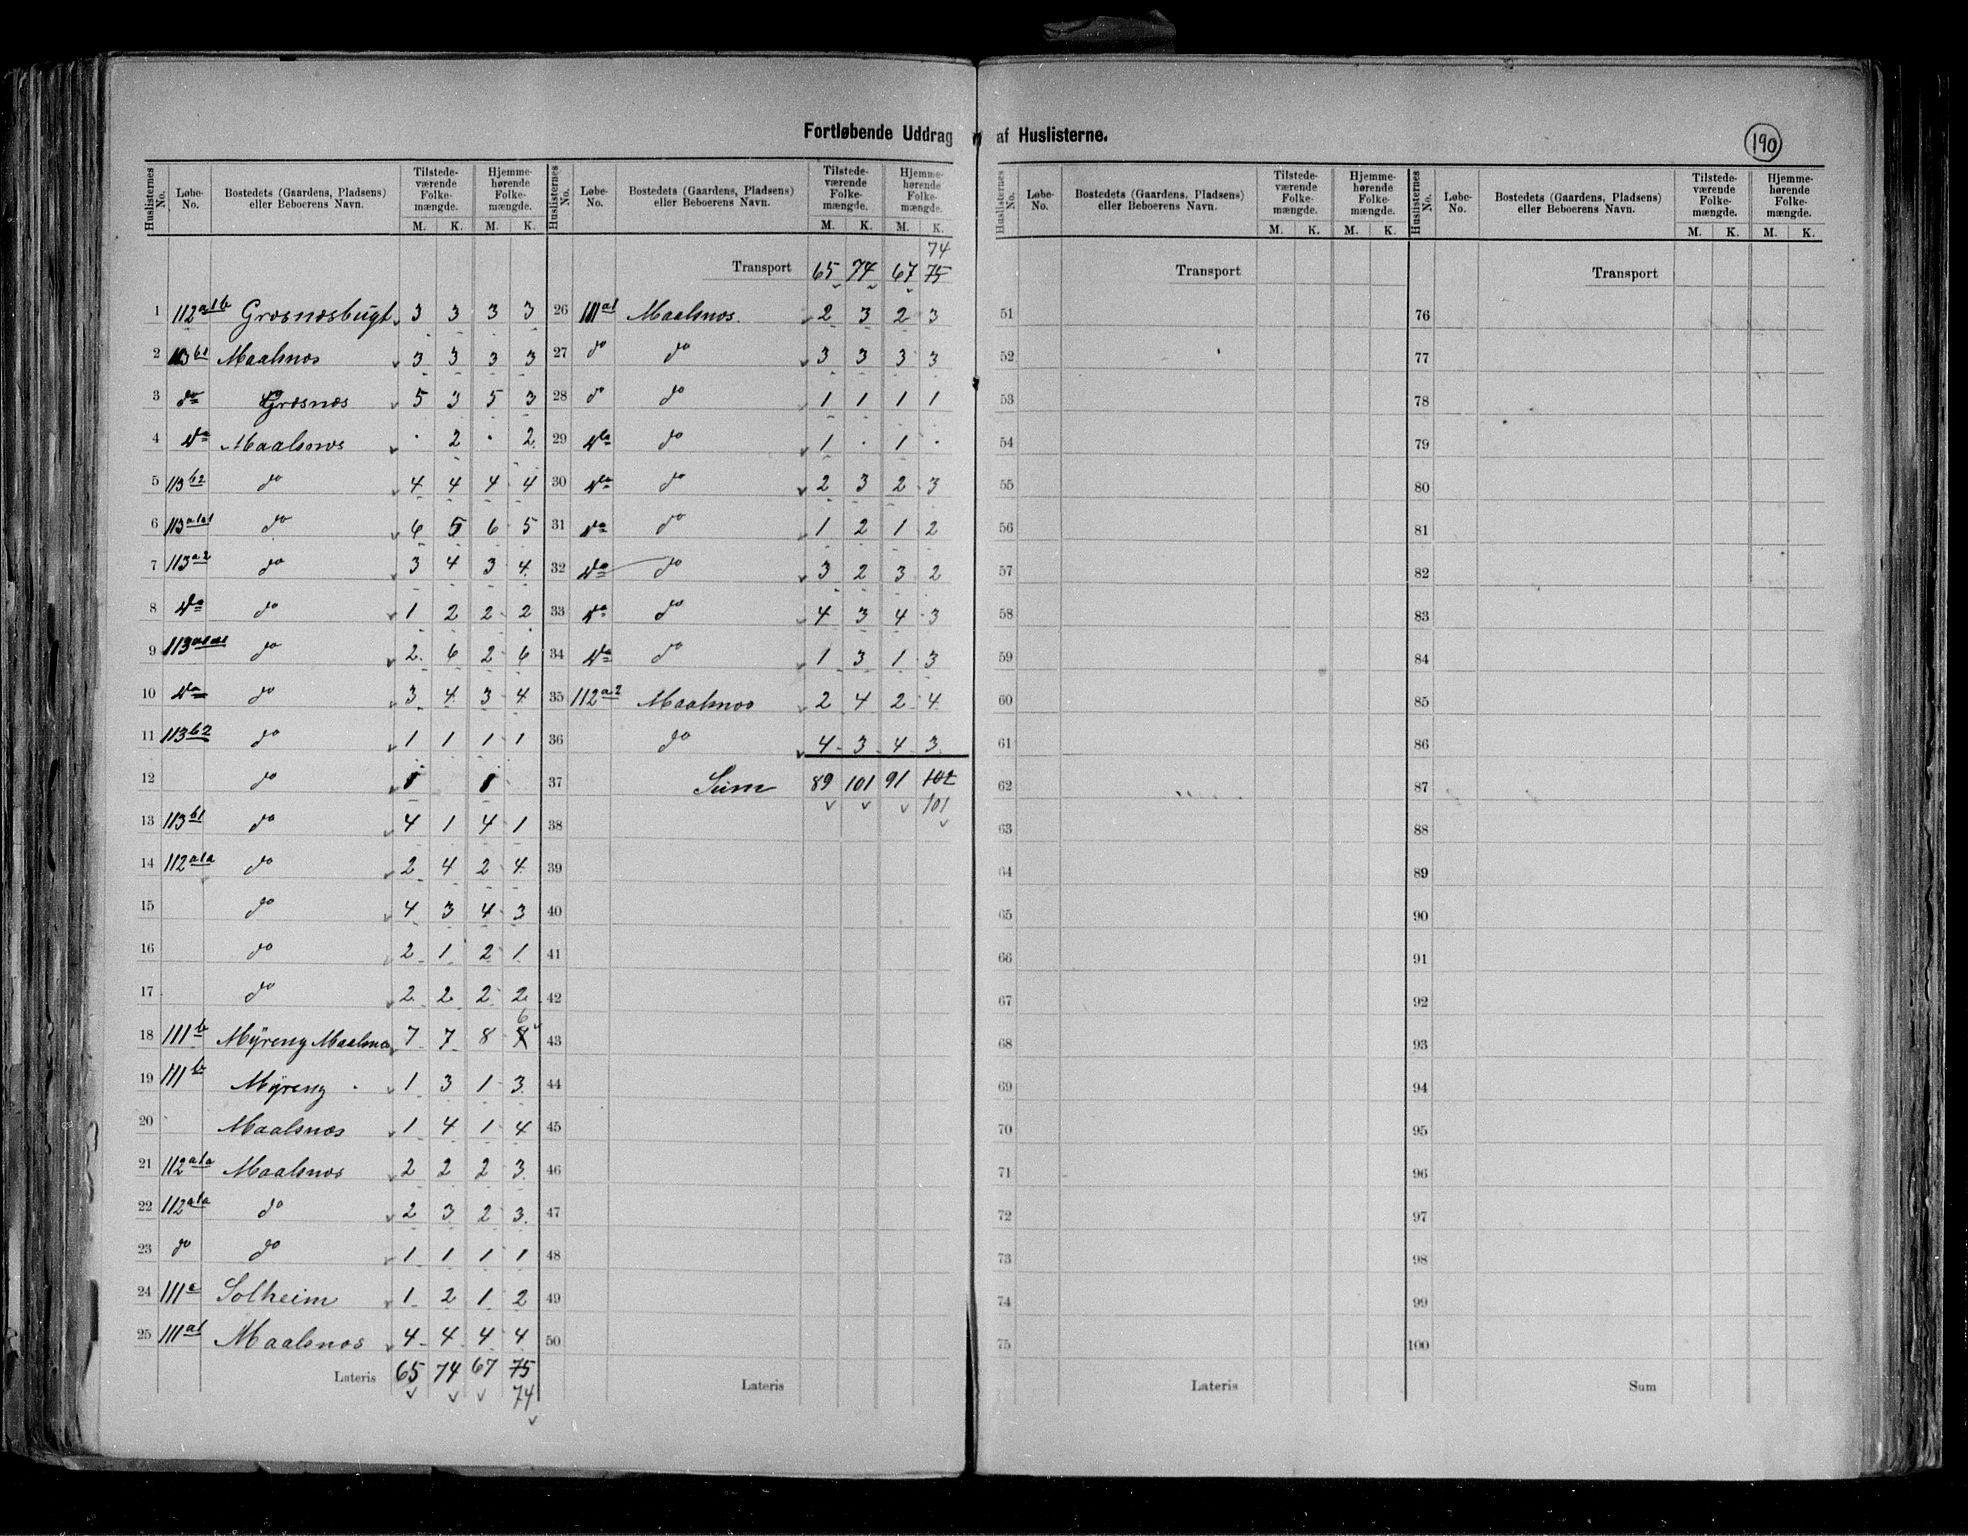 Fortløbende Uddrag af Huslisterne.
190
Huslisternes No. Løbe-No. Bostedets (Gaardens, Pladsens) eller Beboerens Navn. Tilstedeværende Folkemængde. M. K. Hjemmehørende Folkemængde. M. K.
1 112 a1b Græsnæsbugt 3 3 3 3
2 113 b1 Maalsnæs 3 3 3 3
3 do Græsnæs 5 3 5 3
4 do Maalsnæs · 2 · 2
5 113 b2 do 4 4 4 4
6 113 do 6 5 6 5
7 113 a2 do 3 4 3 4
8 do do 1 2 2 2
9 113 do 2 6 2 6
10 do do 3 4 3 4
11 113 b2 do 1 1 1 1
12 do 1 1
13 113 b1 do 4 1 4 1
14 112 a1a do 2 4 2 4
15 do 4 3 4 3
16 do 2 1 2 1
17 do 2 2 2 2
18 111 b Myreng Maalsnæs 7 7 8 6
19 111 b Myreng 1 3 1 3
20 Maalsnæs 1 4 1 4
21 112 a1a Maalsnæs 2 2 2 3
22 112 a1a do 2 3 2 3
23 do do 1 1 1 1
24 111 c Solheim 1 2 1 2
25 111 a1 Maalsnæs 4 4 4 4
Lateris 65 74 67 75
74
Huslisternes No. Løbe-No. Bostedets (Gaardens, Pladsens) eller Beboerens Navn. Tilstedeværende Folkemængde. M. K. Hjemmehørende Folkemængde. M. K.
74
Transport 65 74 67 75
26 111 a1 Maalsnæs. 2 3 2 3
27 do do 3 3 3 3
28 do do 1 1 1 1
29 do do 1 · 1 ·
30 do do 2 3 2 3
31 do do 1 2 1 2
32 do do 3 2 3 2
33 do do 4 3 4 3
34 do do 1 3 1 3
35 112 a2 Maalsnæs 2 4 2 4
36 do 4 3 4 3
37 Sum 89 101 91 102
101
38
39
40
41
42
43
44
45
46
47
48
49
50
Lateris
Huslisternes No. Løbe-No. Bostedets (Gaardens, Pladsens) eller Beboerens Navn. Tilstedeværende Folkemængde. M. K. Hjemmehørende Folkemængde. M. K.
Transport
51
52
53
54
55
56
57
58
59
60
61
62
63
64
65
66
67
68
69
70
71
72
73
74
75
Lateris
Huslisternes No. Løbe-No. Bostedets (Gaardens, Pladsens) eller Beboerens Navn. Tilstedeværende Folkemængde. M. K. Hjemmehørende Folkemængde. M. K.
Transport
76
77
78
79
80
81
82
83
84
85
86
87
88
89
90
91
92
93
94
95
96
97
98
99
100
Sum